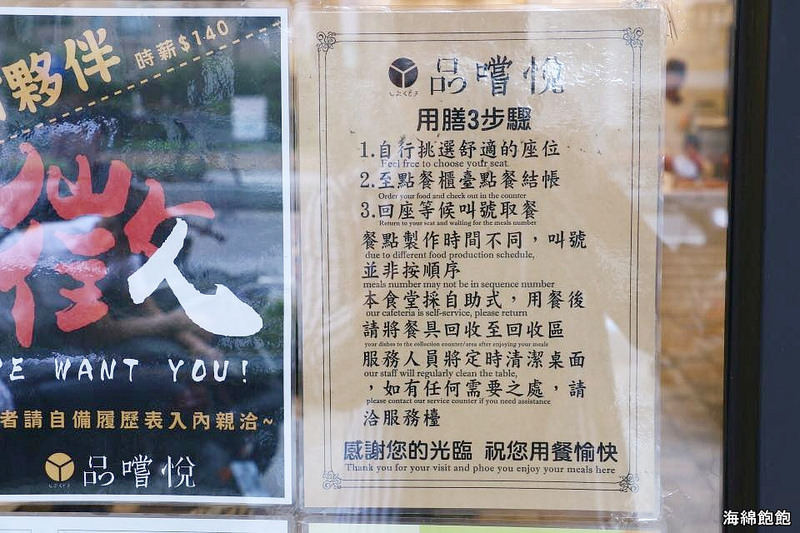 夥伴
時薪$140
徵人
WE WANT YOU!
者請自備履歷表入內親洽~
品嚐悅
品嚐悅
用膳3步驟
1.自行挑選舒適的座位
Feel free to choose your seat
2.至點餐櫃臺點餐結帳
Order your food and check out in the counter
3.回座等候叫號取餐
Return to your seat and waiting for the meals number
餐點製作時間不同,叫號
due to different food production schedule,
並非按順序
meals number may not be in sequence number
本食堂採自助式,用餐後
our cafeteria is self-service, please return
請將餐具回收至回收區
your dishes to the collection counter/area after enjoying your meals
服務人員將定時清潔桌面
our staff will regularly clean the table,
,如有任何需要之處,請
please contact our service counter if you need assistance
洽服務檯
感謝您的光臨 祝您用餐愉快
Thank you for your visit and phoe you enjoy your meals here
海綿飽飽